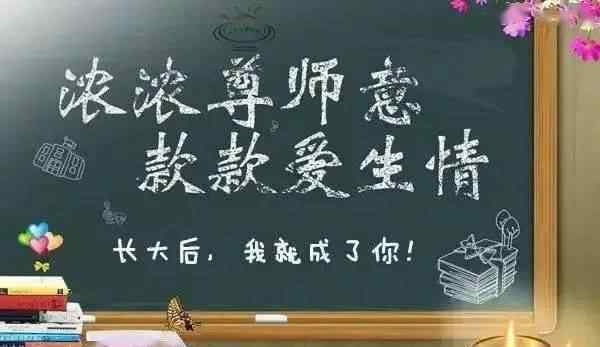 浓浓尊师意
款款爱生情
长大后，我就成了你！